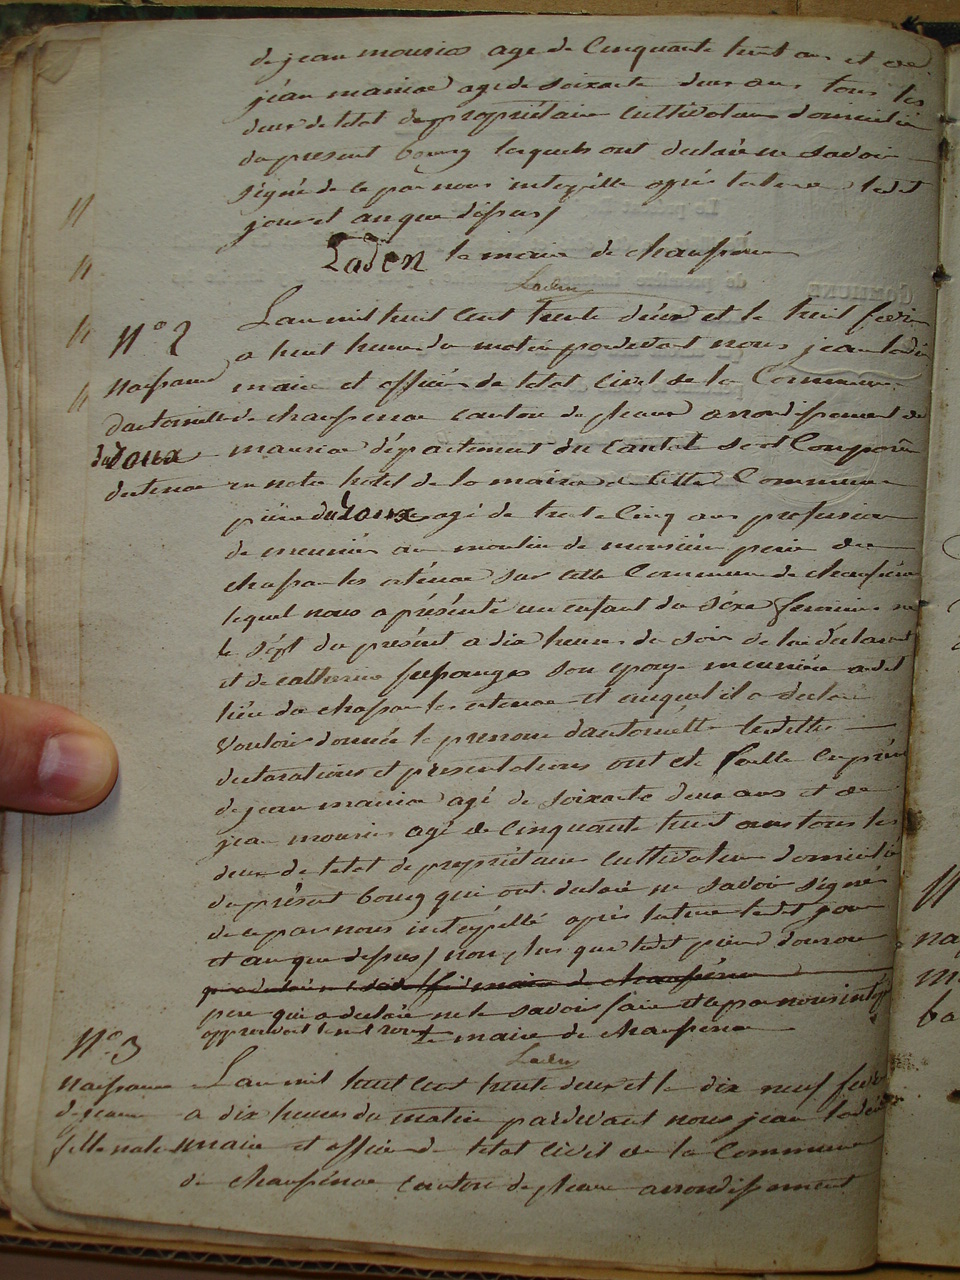 de jean mourios agé de Cinquante huit ans et de
jean maniac agé de soixante deux ans tous les
deux de letat de propriétaire cultivateur domicilié
du present bourg lequels ont declaré ne savoir
signé de ce par nous interpellé après lecture ledit
jour et an que dessus
Laden le maire de chaussenac
Laden
N° 2
naissance
dantoinette
dudoux
detenac
Lan mil huit cent trente deux et le huit fevrier
a huit heure du matin pardevant nous jean laden
maire et officier de letat civil de la Commune
de chaussenac canton de pleaux arrondissement de
mauriac département du cantal sont Comparu
en notre hotel de la mairie de cette Commune
pierre dudoux agé de trente Cinq ans profession
de meunier au moulin de
sur cette Commune de chaussenac
lequel nous a présenté un enfant du séxe feminin né
le sept du présent a dix heures du soir de lui déclarant
et de catherine son epouse meunière audit
lieu de et auquel il a declaré
Vouloir donner le prenom dantoinette lesdittes
declarations et presentations ont été faitte en présence
de jean maniac agé de soixante deux ans et de
jean mourios agé de Cinquante huit ans tous les
deux de letat de propriétaire cultivateur domicilié
du présent bourg qui ont declaré ne savoir signer
de ce par nous interpellé après lecture ledit jour
et an que dessus non plus que ledit pierre
maire de chaussenac
pere qui a declaré ne le savoir faire et ce par nous interpellé
approuvant le mot
le maire de chaussenac
Laden
N° 3
naissance
de jeanne
fille naturelle
Lan mil huit cent trente deux et le dix neuf fevrier
a dix heures du matin pardevant nous jean laden
maire et officier de letat civil de la Commune
de chaussenac canton de pleaux arrondissement